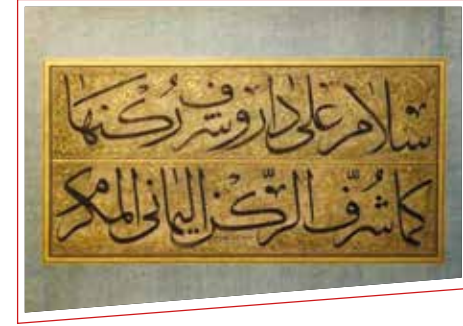 سلام على دار وشرف ركنها
كما شُرِّف الركن اليماني المكرم